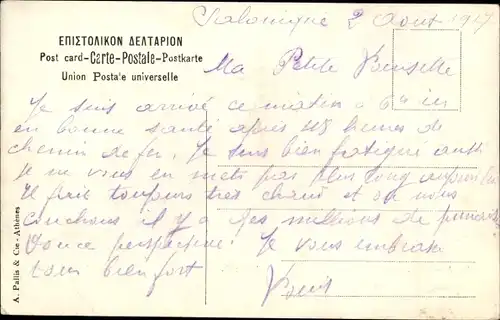 Salonique 2 Aout 1917
ΕΠΙΣΤΟΛΙΚΟΝ ΔΕΛΤΑΡΙΟΝ
Post card-Carte-Postale-Postkarte
Union Postale universelle
Ma Petite
Je suis arrivé ce matin à 6h
en bonne santé après 48 heures de
chemin de fer. Je suis bien fatigué aussi
je ne vous en mets pas plus long aujourd'hui
Il fait toujours très chaud et où nous
couchons il y a des millions de punaises
Douce perspective. Je vous embrasse
tous bien fort
Louis
A. Pallis & Cie - Athènes